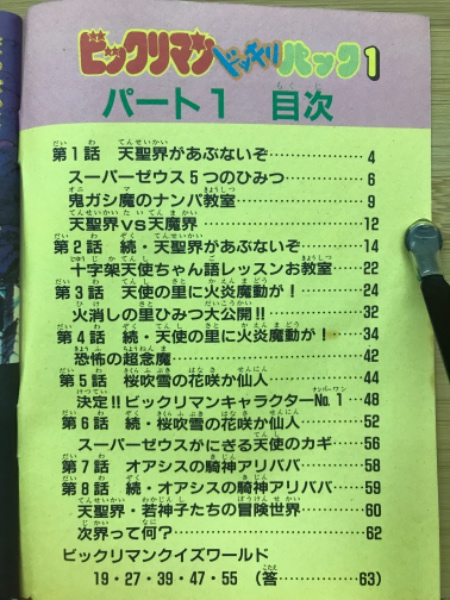 ビックリマンドッキリパック1
パート1 目次
第1話 天聖界があぶないぞ……………4
スーパーゼウス5つのひみつ……………6
鬼ガシ魔のナンパ教室……………9
天聖界vs天魔界……………12
第2話 続・天聖界があぶないぞ……………14
十字架天使ちゃん語レッスンお教室……22
第3話 天使の里に火炎魔動が！………24
火消しの里ひみつ大公開!!……………32
第4話 続・天使の里に火炎魔動が！……34
恐怖の超念魔……………42
第5話 桜吹雪の花咲か仙人……………44
決定!!ビックリマンキャラクターNo.1…48
第6話 続・桜吹雪の花咲か仙人………52
スーパーゼウスがにぎる天使のカギ……56
第7話 オアシスの騎神アリババ………58
第8話 続・オアシスの騎神アリババ……59
天聖界・若神子たちの冒険世界………60
次界って何？……………62
ビックリマンクイズワールド
19・27・39・47・55（答……………63）